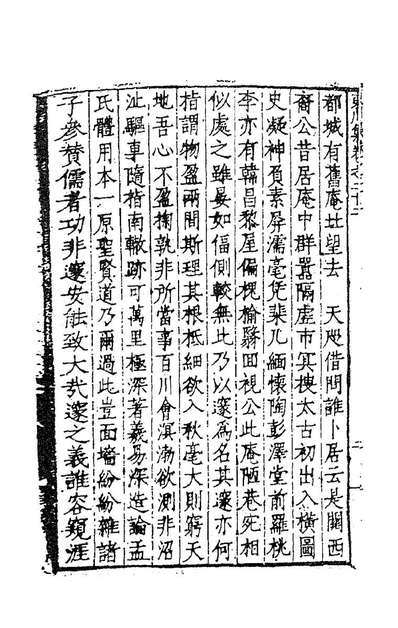 都城有舊庵地望去天咫借問誰卜居云是關西
裔公昔居庵中群囂隔虛市冥搜太古初出入橫圖
史凝神旁素屏濡毫凭棐几緬懷陶彭澤堂前羅桃
李亦有韓昌黎屋偏槐榆翳回視公此庵陋巷宛相
似處之雖晏如偪側較無比乃以邃為名其邃亦何
指謂物盈兩間斯理其根柢細欲入秋毫大則窮天
地吾心不盈掬孰非所當事百川會溟渤欲測非沼
沚驅車隨指南轍跡可萬里極深著羲易深造論孟
氏體用本一原聖賢道乃爾過此豈面墻紛紛雜諸
子參贊儒者功非邃安能致大哉邃之義誰容窺涯